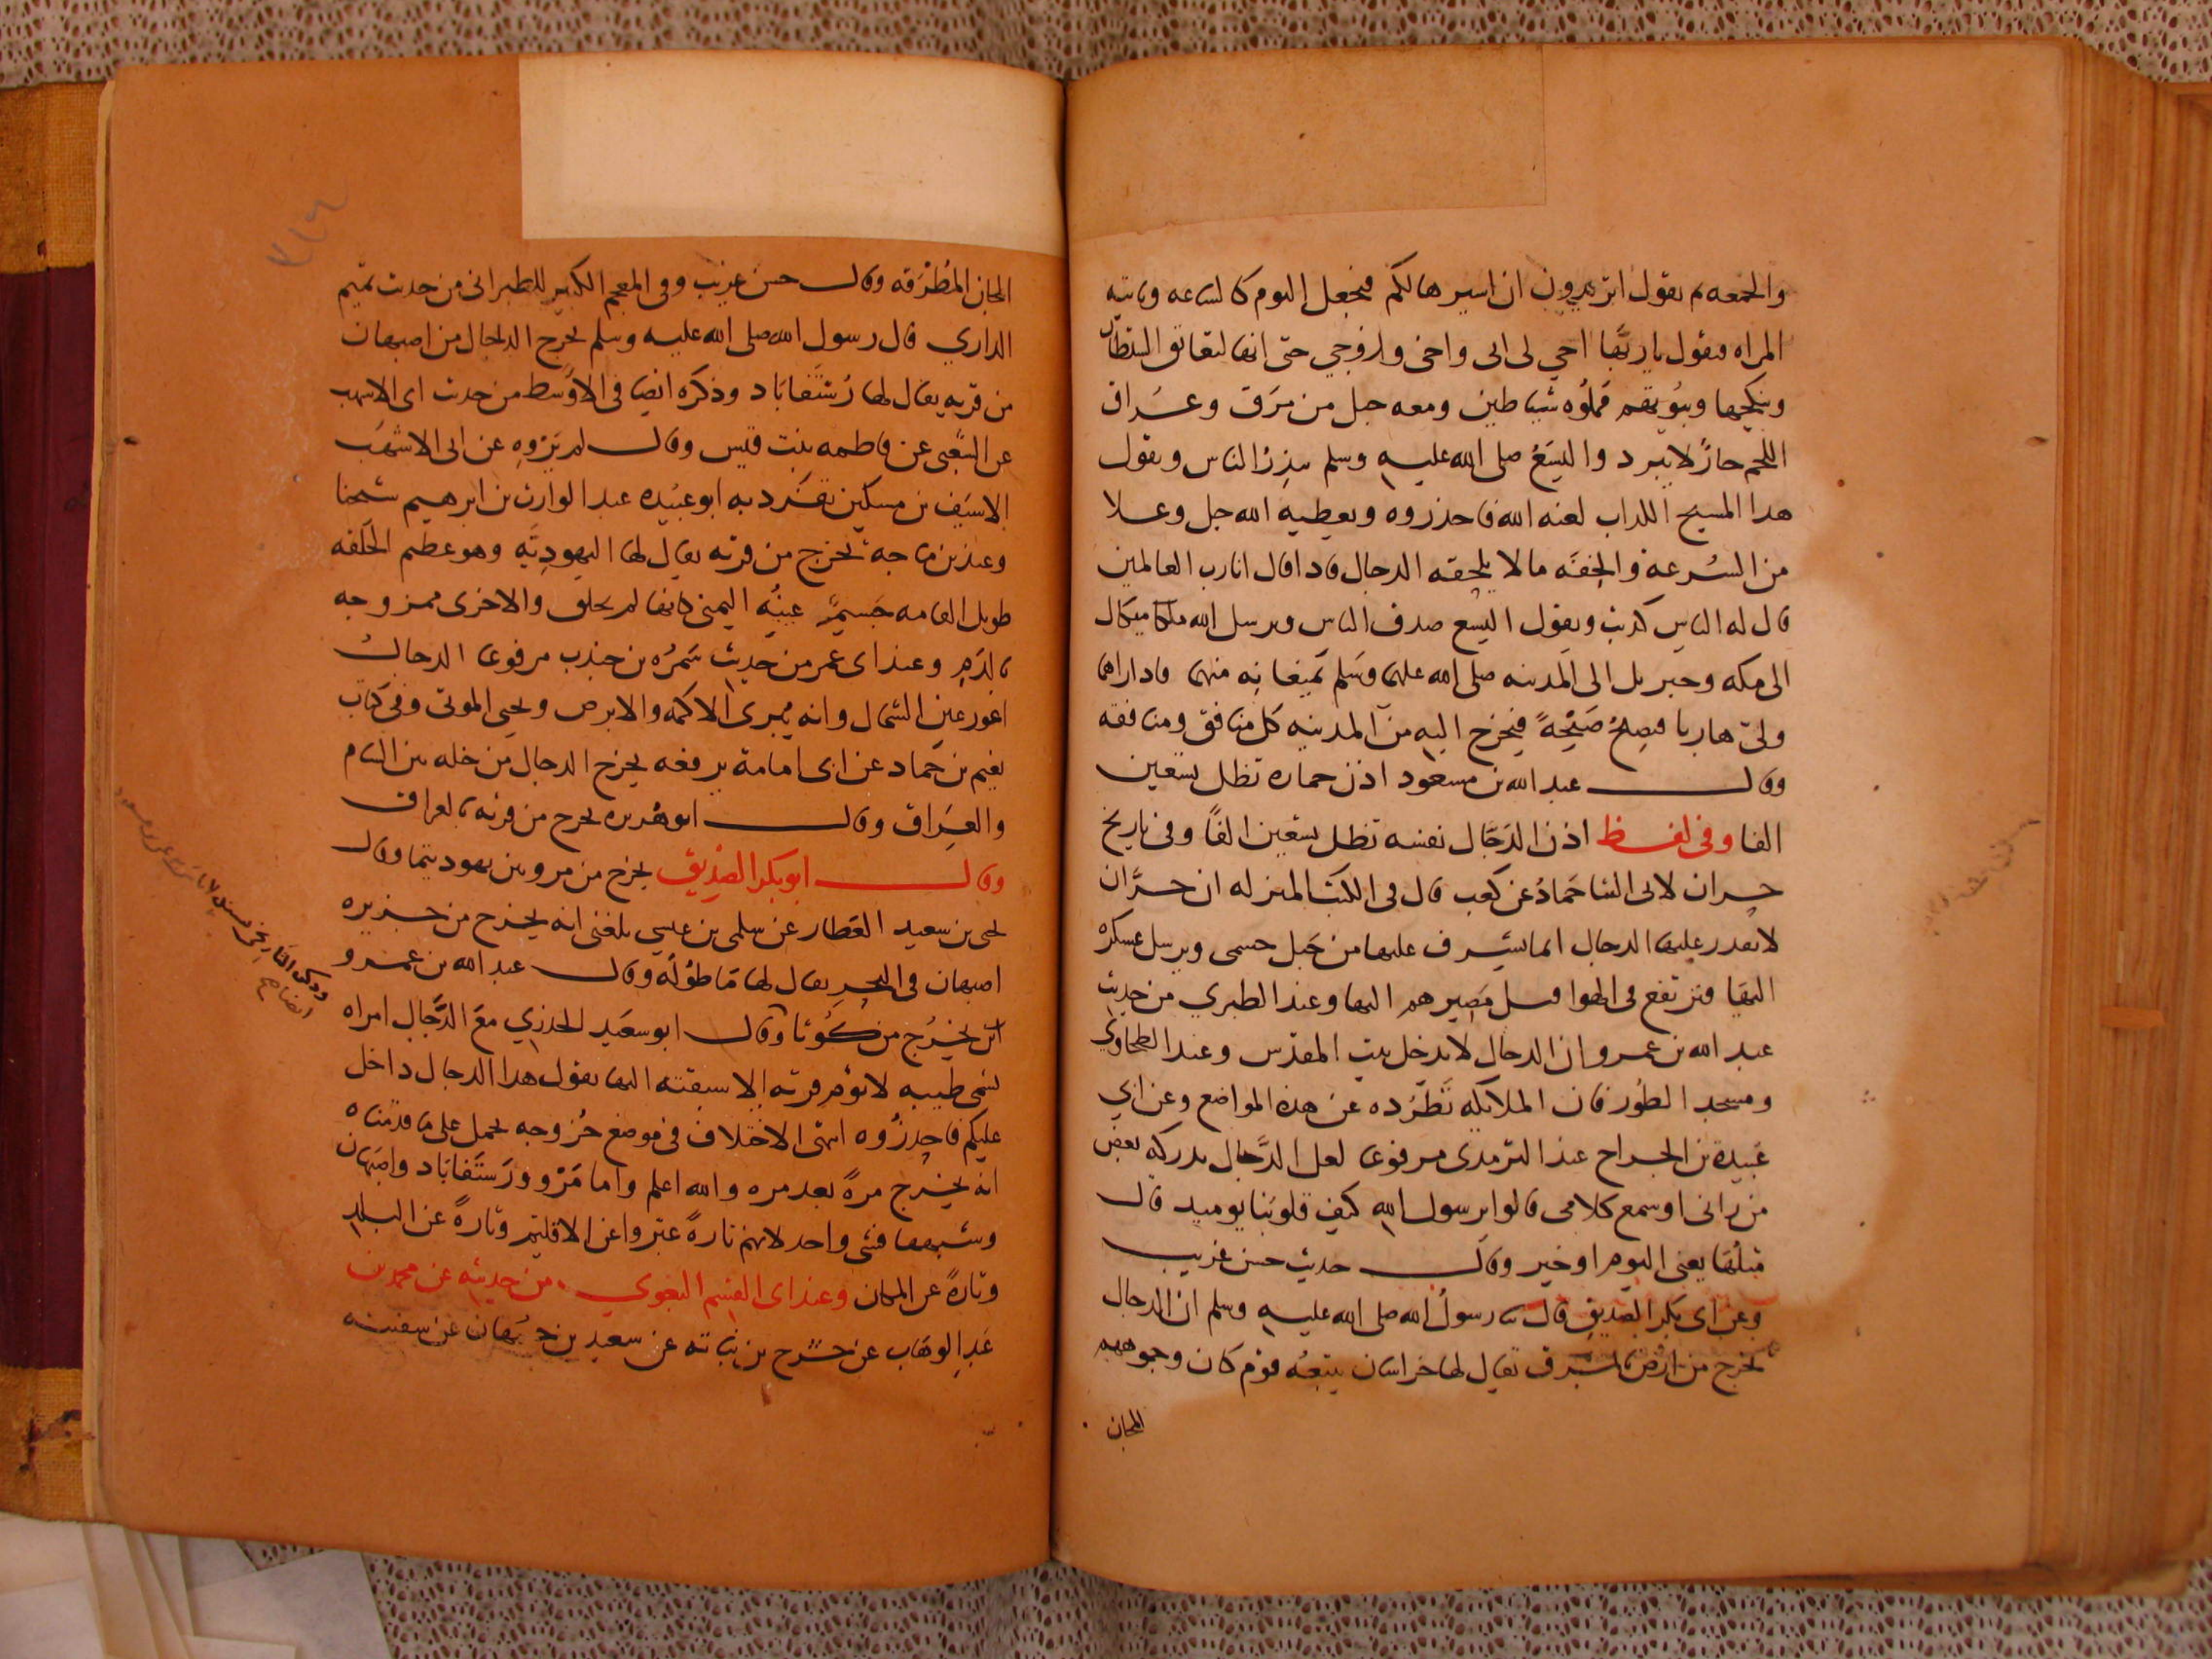 والجمعه ثم يقول اتريدون ان اسيرها لكم فيجعل اليوم كالساعه وتاتيه
المراه فيقول يا ربنا احي لي ابي واخي وزوجي حتى انها لتعانق الشيطان
وينكحها وبيوتهم مملوه شياطين ومعه جبل من مرق وعراق
اللحم حار لا يبرد واليسع صلى الله عليه وسلم ينذر الناس ويقول
هدا المسيح الكداب لعنه الله فاحذروه ويعطيه الله جل وعلا
من السرعة والخفة ما لا يلحقه الدجال فاداقال انا رب العالمين
قال له الناس كذبت ويقول اليسع صدق الناس ويرسل الله ملكا ميكال
الى مكه وجبريل الى المدينه صلى الله عليهما وسلم يمنعانه منهما فاداراهما
ولى هاربا فيصيح صيحة فيخرج اليه من المدينه كل منافق ومنافقه
وقال عبد الله بن مسعود اذن حماره تظل سبعين
الفا وفي لفظ اذن الدجال نفسه تظل سبعين الفا وفي تاريخ
حران لابي الثنا حماد عن كعب قال في الكتب المنزله ان حران
لا يقدر عليها الدجال انما يشرف عليها من جبل حسمى ويرسل عسكره
اليها فترتفع في الهوا مصيرهم اليها وعند الطبري من حديث
عبد الله بن عمرو ان الدجال لا يدخل بيت المقدس وعند الطحاوي
ومسجد الطور فان الملايكه تطرده عن هذه المواضع وعن ابي
عبيدة بن الجراح عند الترمدى مرفوعا لعل الدجال يدركه بعض
من راني او سمع كلامى قالوا يرسول الله كيف قلوبنا يوميد قال
مثلها يعنى اليوم او خير وقال حديث حسن غريب
وعن ابى بكر الصديق قال نا رسول الله صلى الله عليه وسلم ان الدجال
يخرج من ارض بالمشرق يقال لها خراسان يتبعه قوم كان وجوههم
المجان
المجان المطرقه وقال حسن غريب وفى المعجم الكبير للطبرانى من حديث تميم
الداري قال رسول الله صلى الله عليه وسلم يخرج الدجال من اصبهان
من قريه يقال لها رستقاباد وذكره ايضا فى الاوسط من حديث ابى الاشهب
عن الشعبى عن فاطمه بنت قيس وقال لم يروه عن ابى الاشهب
الا سيف بن مسكين تفرد به ابو عبيده عبد الوارث بن ابرهيم شيخنا
وعند بن ماجة يخرج من قريه يقال لها اليهودية وهو عظيم الخلقه
طويل القامه جسيم عينه اليمنى كانها لم تخلق والاخرى ممزوجه
بالدم وعند ابى عمر من حديث سمرة بن جندب مرفوعا الدجال
اعور عين الشمال وانه يبرى الاكمه والابرص ويحيى الموتى وفي كتاب
نعيم بن حماد عن ابى امامة يرفعه يخرج الدجال من خله بين الشام
والعراق وقال ابو هريره يخرج من قريه بالعراق
وقال ابو بكر الصديق يخرج من مرو من يهوديتها وقال
يحيى بن سعيد العطار عن سلمى بن عيسى بلغنى انه يخرج من جزيره
اصبهان فى البحر يقال لها ماطوله وقال عبد الله بن عمرو
يخرج من كوثا وقال ابو سعيد الخدري مع الدجال امراه
تسمى طيبه لا يؤم قريه الا سبقته اليها يقول هدا الدجال داخل
عليكم فاحذروه انتهى الاختلاف في موضع خروجه يحمل على ما قدمناه
انه يخرج مرة بعد مره والله اعلم واما مرو ورستقاباد واصبهان
وشبهها فشى واحد لانهم تارة عبروا عن الاقليم وتارة عن البلد
وتارة عن المكان وعند ابى القسم البغوي من حديثه عن محمد بن
عبد الوهاب عن حشرج بن نباته عن سعيد بن جهمان عن سفينه